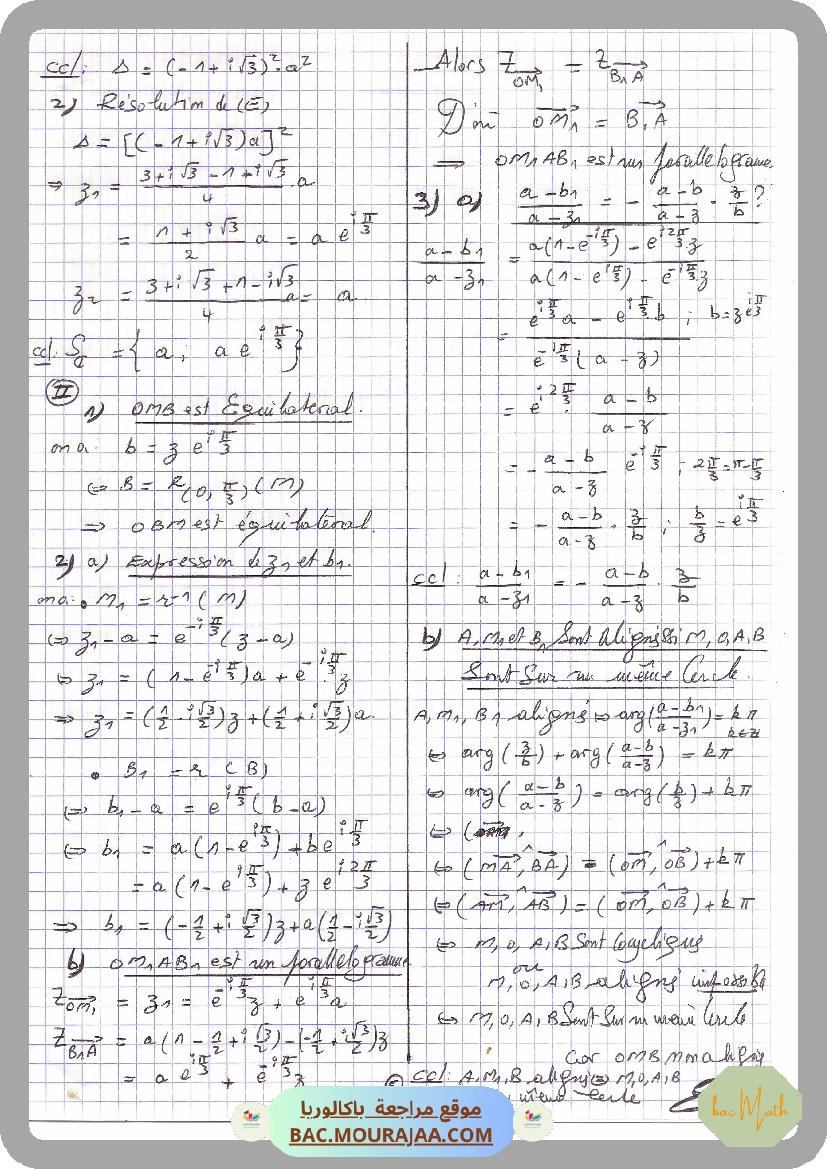 ccl: Δ = (-1+i√3)²·a²
2) Résolution de (E)
Δ = [(-1+i√3)a]²
⇒ z₁ = (3+i√3 -1+i√3)/4 · a
= (1+i√3)/2 a = a e^{iπ/3}
z₂ = (3+i√3+1-i√3)/4 a = a
ccl: S_ℂ = { a ; a e^{iπ/3} }
II
1) OMB est Equilateral.
on a: b = z e^{iπ/3}
⇔ B = R(O, π/3) (M)
⇒ OBM est équilatéral.
2) a) Expression de z₁ et b₁.
on a: • M₁ = r⁻¹(M)
⇔ z₁-a = e^{-iπ/3}(z-a)
⇔ z₁ = (1-e^{-iπ/3})a + e^{-iπ/3} z
⇒ z₁ = (1/2 - i√3/2)z + (1/2 + i√3/2)a.
• B₁ = r(B)
⇔ b₁-a = e^{iπ/3}(b-a)
⇔ b₁ = a(1-e^{iπ/3}) + b e^{iπ/3}
= a(1-e^{iπ/3}) + z e^{i2π/3}
⇒ b₁ = (-1/2 + i√3/2)z + a(1/2 - i√3/2)
b) OM₁AB₁ est un parallelograme
Z_{OM₁→} = z₁ = e^{-iπ/3}z + e^{iπ/3}a
Z_{B₁A→} = a(1 - 1/2 + i√3/2) - (-1/2 + i√3/2)z
= a e^{iπ/3} + e^{-iπ/3}z
Alors Z_{OM₁→} = Z_{B₁A→}
D'où OM₁→ = B₁A→
⇒ OM₁AB₁ est un parallelograme.
3) a) (a-b₁)/(a-z₁) = - (a-b)/(a-z) · z/b ?
(a-b₁)/(a-z₁) = (a(1-e^{-iπ/3}) - e^{i2π/3}z)/(a(1-e^{iπ/3}) - e^{-iπ/3}z)
= (e^{iπ/3}a - e^{iπ/3}·b)/(e^{-iπ/3}(a-z)) ; b = z e^{iπ/3}
= e^{i2π/3} · (a-b)/(a-z)
= - (a-b)/(a-z) e^{-iπ/3} ; 2π/3 = π-π/3
= - (a-b)/(a-z) · z/b ; b/z = e^{iπ/3}
ccl: (a-b₁)/(a-z₁) = - (a-b)/(a-z) · z/b
b) A, M₁ et B₁ sont alignés ssi M, O, A, B
sont sur un même Cercle.
A, M₁, B₁ alignés ⇔ arg((a-b₁)/(a-z₁)) = kπ
k∈ℤ
⇔ arg(z/b) + arg((a-b)/(a-z)) = kπ
⇔ arg((a-b)/(a-z)) = arg(b/z) + kπ
⇔ (MA→, BA→) = (OM→, OB→) + kπ
⇔ (AM→, AB→) = (OM→, OB→) + kπ
⇔ M, O, A, B sont cocycliques
ou
M, O, A, B alignés impossible
⇔ M, O, A, B sont sur un même Cercle
Car OMB non alignés
ccl: A, M₁, B alignés ⇔ M, O, A, B
même cercle
موقع مراجعة باكالوريا
BAC.MOURAJAA.COM
bac Math